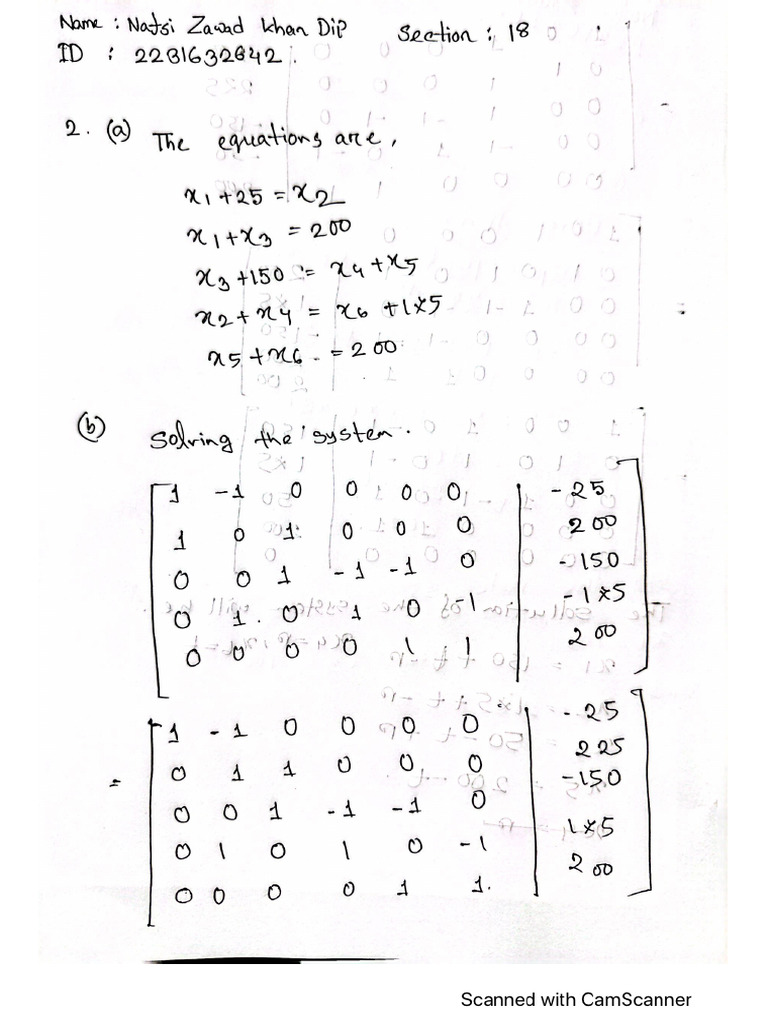 Name : Nafsi Zawad Khan Dip Section : 18
ID : 2231632642.
2. (a) The equations are,
x1 + 25 = x2
x1 + x3 = 200
x3 + 150 = x4 + x5
x2 + x4 = x6 + 175
x5 + x6 = 200
(b) Solving the system.
1 -1 0 0 0 0 | -25
1 0 1 0 0 0 | 200
0 0 1 -1 -1 0 | -150
0 1 0 1 0 -1 | -175
0 0 0 0 1 1 | 200
= 1 -1 0 0 0 0 | -25
0 1 1 0 0 0 | 225
0 0 1 -1 -1 0 | -150
0 1 0 1 0 -1 | 175
0 0 0 0 1 1. | 200
Scanned with CamScanner